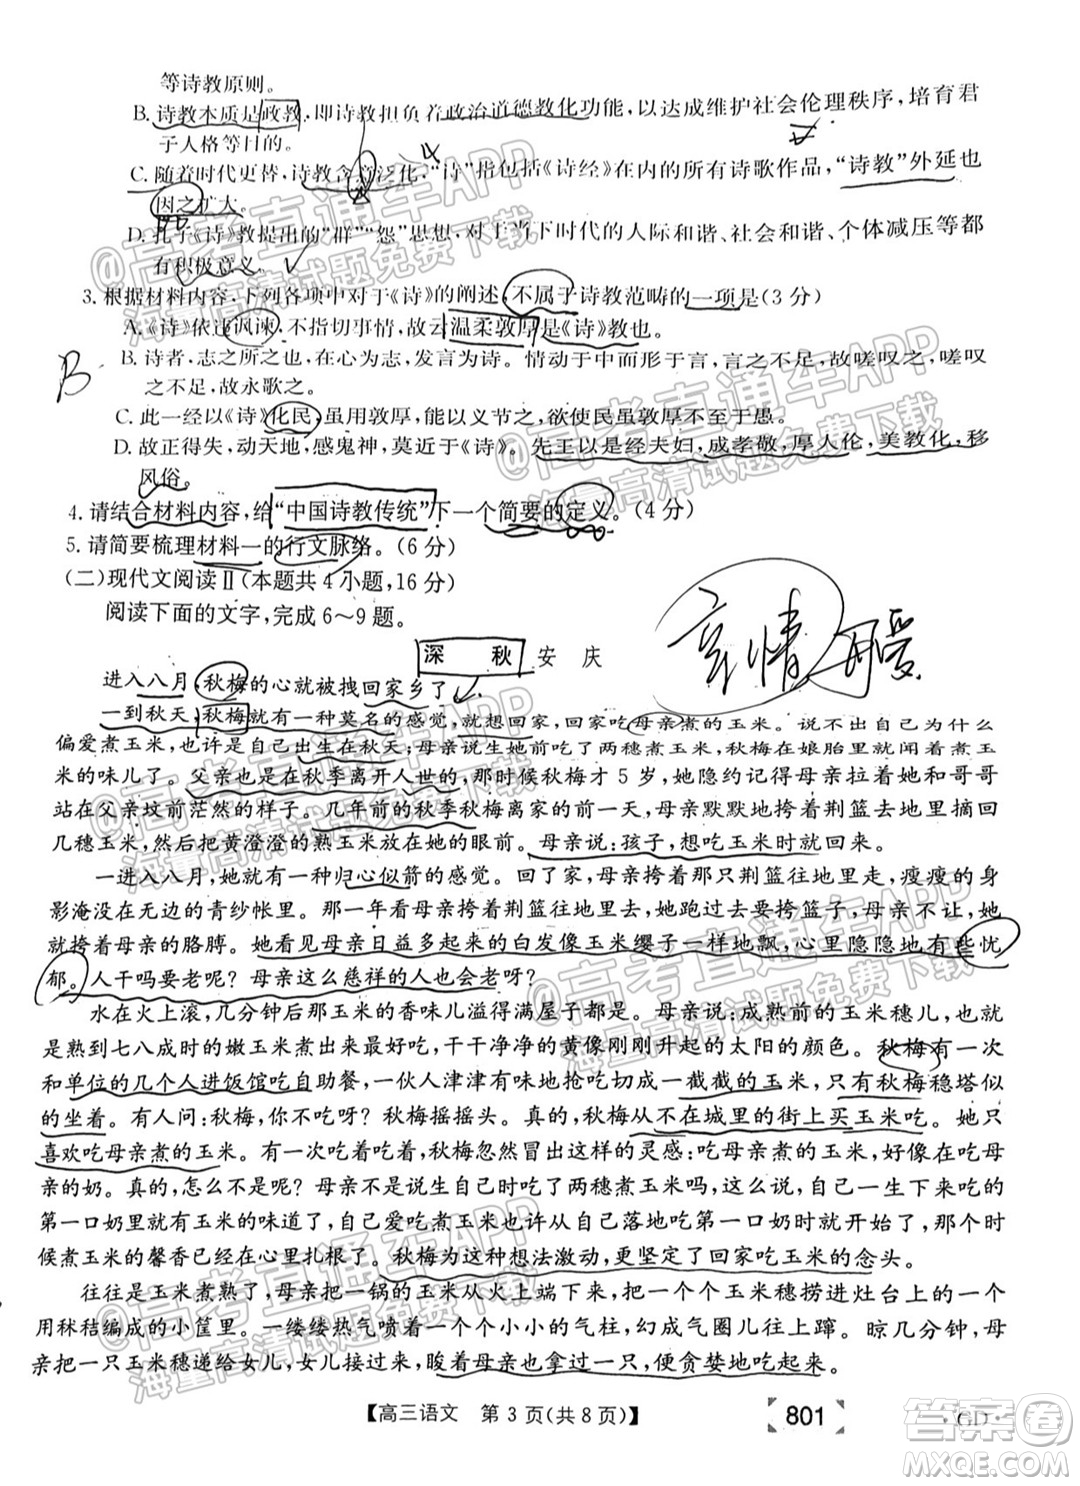 等诗教原则。
B. 诗教本质是政教,即诗教担负着政治道德教化功能,以达成维护社会伦理秩序、培育君
子人格等目的。
C. 随着时代更替,诗教含意泛化,“诗”指包括《诗经》在内的所有诗歌作品,“诗教”外延也
因之扩大。
D. 孔子《诗》教提出的“群”“怨”对于当下时代的人际和谐、社会和谐、个体减压等都
有积极意义。
3. 根据材料内容,下列各项中对于《诗》的阐述,不属于诗教范畴的一项是(3分)
A.《诗》依违讽谏,不指切事情,故云温柔敦厚是《诗》教也。
B
B. 诗者,志之所之也,在心为志,发言为诗。情动于中而形于言,言之不足,故嗟叹之,嗟叹
之不足,故永歌之。
C. 此一经以《诗》化民,虽用敦厚,能以义节之,欲使民虽敦厚不至于愚。
D. 故正得失,动天地,感鬼神,莫近于《诗》。先王以是经夫妇,成孝敬,厚人伦,美教化,移
风俗。
4. 请结合材料内容,给“中国诗教传统”下一个简要的定义。(4分)
5. 请简要梳理材料一的行文脉络。(6分)
(二)现代文阅读Ⅱ(本题共4小题,16分)
阅读下面的文字,完成6~9题。
深 秋 安 庆
亲情 母爱
进入八月,秋梅的心就被拽回家乡了。
一到秋天,秋梅就有一种莫名的感觉,就想回家,回家吃母亲煮的玉米。说不出自己为什么
偏爱煮玉米,也许是自己出生在秋天;母亲说生她前吃了两穗煮玉米,秋梅在娘胎里就闻着煮玉
米的味儿了。父亲也是在秋季离开人世的,那时候秋梅才5岁,她隐约记得母亲拉着她和哥哥
站在父亲坟前茫然的样子。几年前的秋季秋梅离家的前一天,母亲默默地挎着荆篮去地里摘回
几穗玉米,然后把黄澄澄的熟玉米放在她的眼前。母亲说:孩子,想吃玉米时就回来。
一进入八月,她就有一种归心似箭的感觉。回了家,母亲挎着荆篮往地里走,瘦瘦的身
影淹没在无边的青纱帐里。那一年看母亲挎着荆篮往地里走,她要去挎篮子,母亲不让,她
就挎着母亲的胳膊。她看见母亲日益多起来的白发像玉米缨子一样地飘,心里隐隐地有些忧
郁。人干吗要老呢?母亲这么慈祥的人也会老呀?
水在火上滚,几分钟后那玉米的香味儿溢得满屋子都是。母亲说:成熟前的玉米穗儿,也就
是熟到七八成时的嫩玉米煮出来最好吃,干干净净的黄像刚刚升起的太阳的颜色。秋梅有一次
和单位的几个人进饭馆吃自助餐,一伙人津津有味地抢吃一截截的玉米,只有秋梅稳塔似
的坐着。有人问:秋梅,你不吃呀?秋梅摇摇头。真的,秋梅从不在城里的街上买玉米吃。她只
喜欢吃母亲煮的玉米。有一次吃着玉米,秋梅竟然突发奇想的灵感:吃母亲煮的玉米是在吃母
亲的奶。真的,怎么不是呢?母亲不是说生自己时吃了两穗煮玉米吗?母亲说不定在我吃
第一口奶里就有玉米的味道了,在我落地吃第一口奶时
候煮玉米的馨香已经在心里扎根了。秋梅为这种想法激动,更坚定了回家吃玉米的念头。
往往是玉米煮熟了,母亲把一锅的玉米从火上端下来,把一个个玉米穗捞进灶台上的一个
用秫秸编成的小筐里。一缕缕热气喷着一个个小小的气柱,幻成气圈儿向上蹿。晾几分钟,母
亲把一只玉米穗递给女儿,女儿捧着,瞍着母亲也拿过一只,便贪婪地吃起来。
【高三语文 第3页(共8页)】
801
·GD·
@高考直通车APP
海量高清试题免费下载
答案圈
MXQE.COM